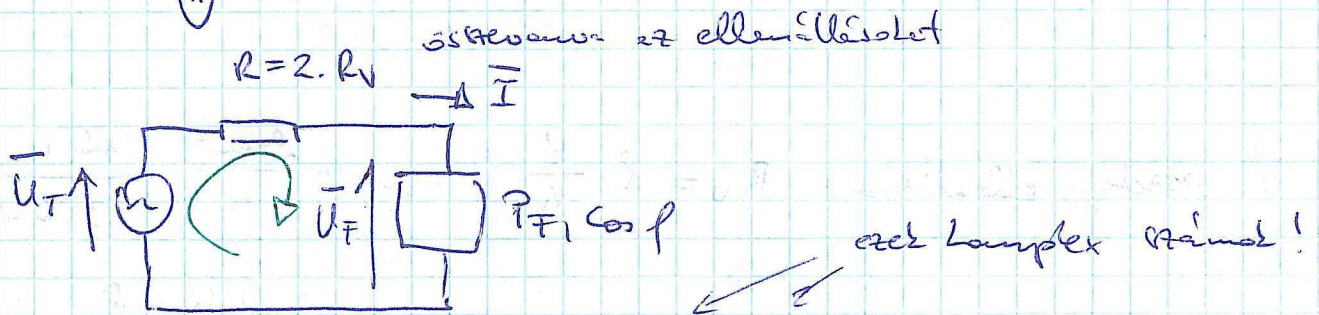 összevonva az ellenállásokat
R = 2 · Rv
I̅
U̅T
U̅F
PF, cos φ
ezek komplex számok!